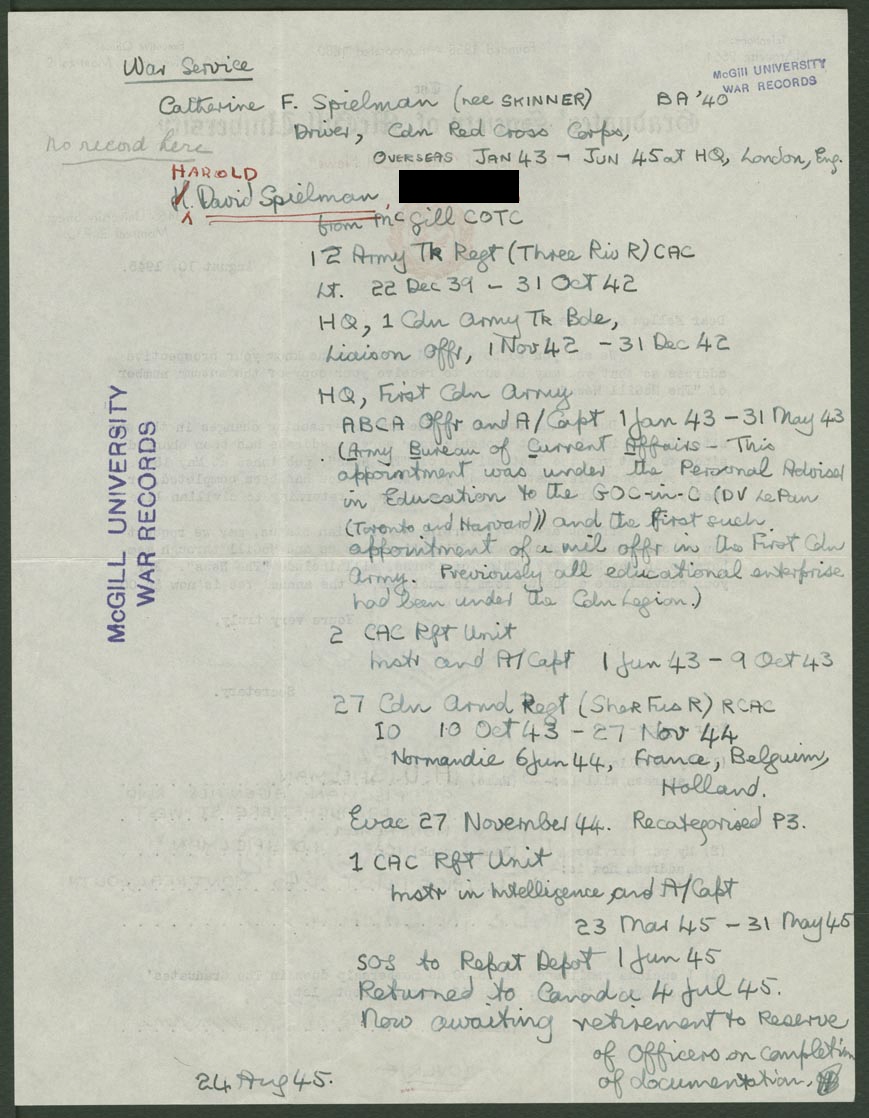 War Service
McGILL UNIVERSITY
WAR RECORDS
Catherine F. Spielman (nee SKINNER) BA '40
Driver, Cdn Red Cross Corps,
No record here
OVERSEAS JAN 43 – JUN 45 at HQ, London, Eng.
HAROLD
H. David Spielman,
from McGill COTC
12 Army Tk Regt (Three Riv R) CAC
Lt. 22 Dec 39 – 31 Oct 42
HQ, 1 Cdn Army Tk Bde,
Liaison Offr, 1 Nov 42 – 31 Dec 42
HQ, First Cdn Army
ABCA Offr and A/Capt 1 Jan 43 – 31 May 43
(Army Bureau of Current Affairs – This
appointment was under the Personal Adviser
in Education to the GOC-in-C (DV LePan
(Toronto and Harvard)) and the first such
appointment of a mil offr in the First Cdn
Army. Previously all educational enterprise
had been under the Cdn Legion.)
McGILL UNIVERSITY
WAR RECORDS
2 CAC Rft Unit
Instr and A/Capt 1 Jun 43 – 9 Oct 43
27 Cdn Armd Regt (Sher Fus R) RCAC
IO 10 Oct 43 – 27 Nov 44
Normandie 6 Jun 44, France, Belguim,
Holland.
Evac 27 November 44. Recategorised P3.
1 CAC Rft Unit
Instr in Intelligence, and A/Capt
23 Mar 45 – 31 May 45
SOS to Repat Depot 1 Jun 45
Returned to Canada 4 Jul 45.
Now awaiting retirement to Reserve
of Officers on completion
of documentation.
24 Aug 45.